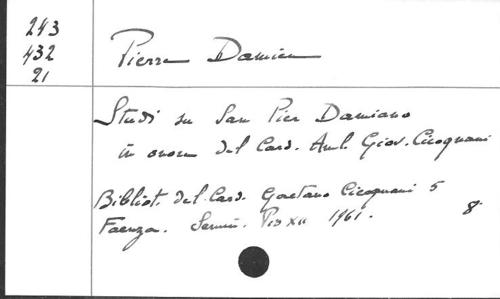 243
432
21
Pierre Damien
Studi su San Pier Damiano
in onore del Card. Aml. Giov. Cicognani
Bibliot. del Card. Gaetano Cicognani 5
Faenza. Semin. Pio XII 1961. 8°